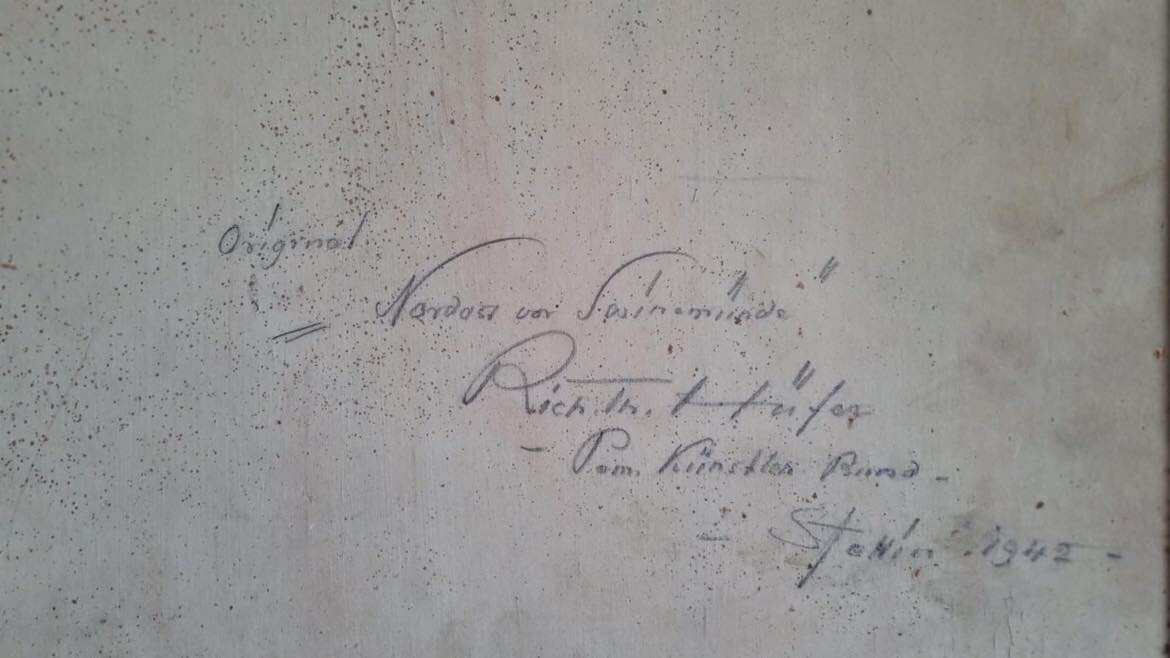 Original
Nordost vor Swinemünde"
Rich. Th. Hüfer
- Pom. Künstler Bund -
- Stettin 1942 -